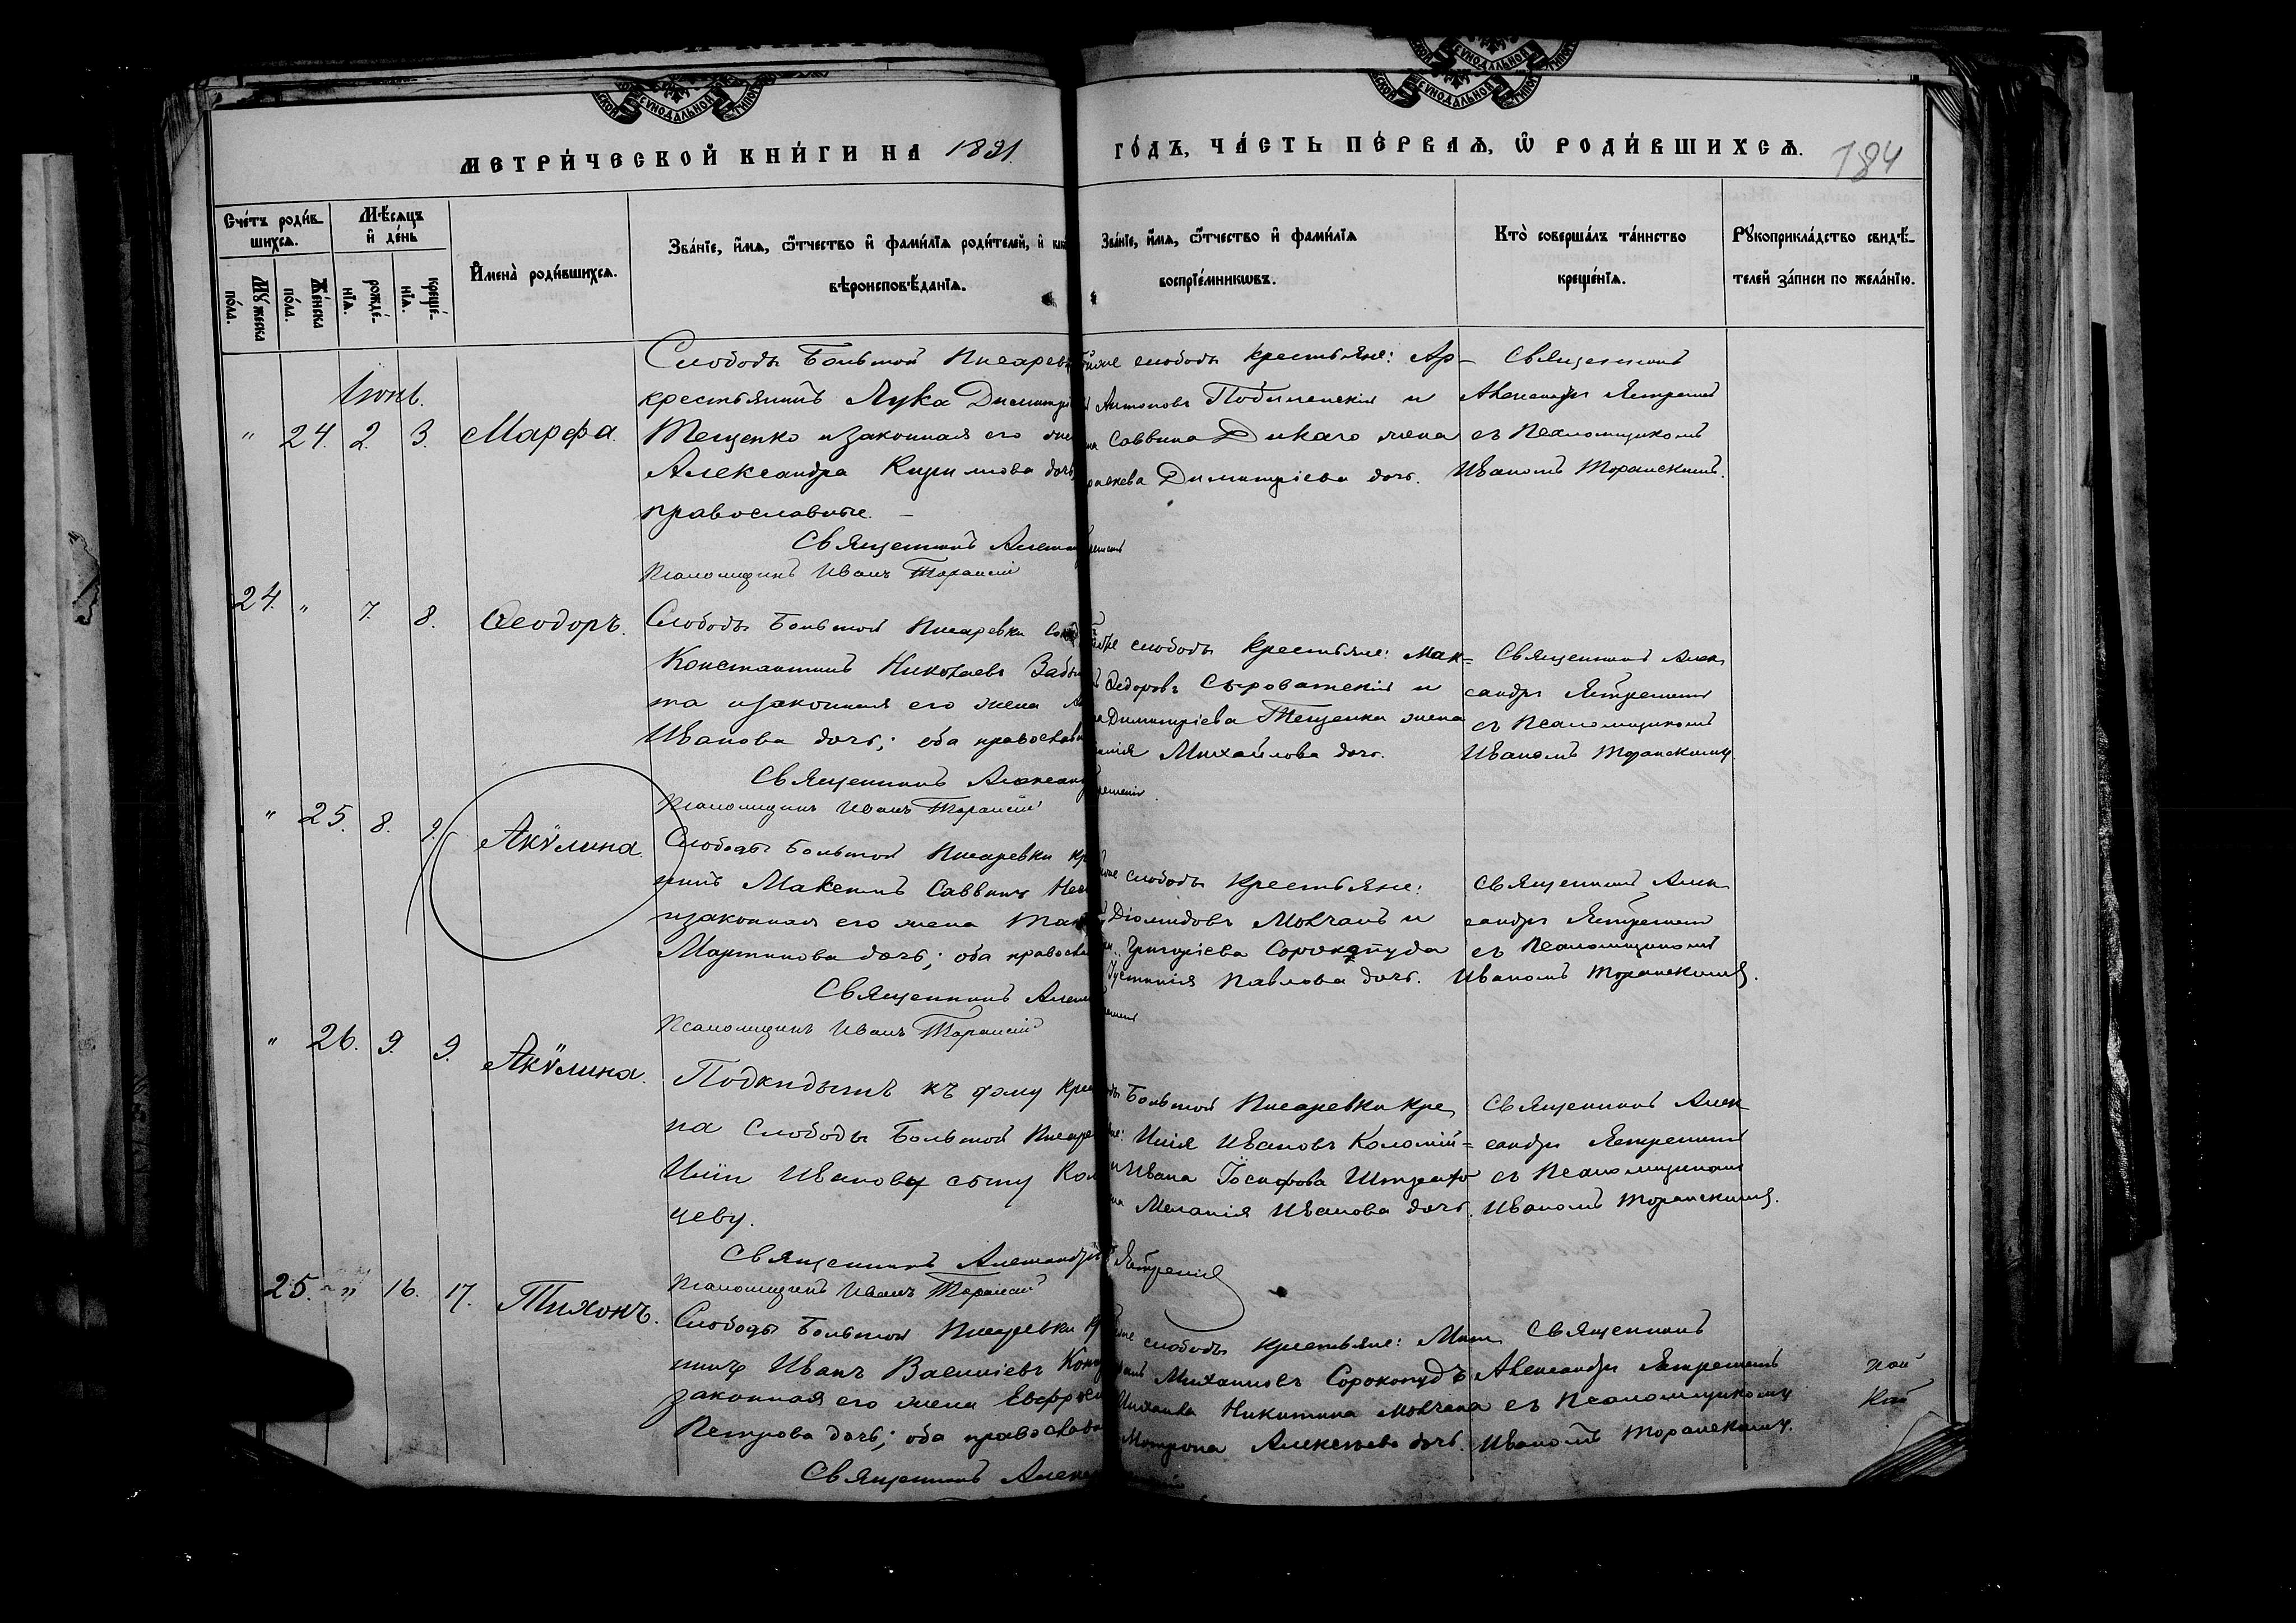 МЕТРИ́ЧЕСКОЙ КНИ́ГИ НА 1891.
ГО́ДЪ, ЧА́СТЬ ПЕ́РВАѦ, Ѡ҆ РОДИ́ВШИХСѦ.
184
Сче́тъ роди́в-
шихсѧ.
Мꙋ́жеска по́ла.
Же́нска по́ла.
Мѣ́сѧцъ
и҆ де́нь
рожде́-
нїѧ.
креще́-
нїѧ.
И҆мена̀ роди́вшихсѧ.
Зва́нїе, и҆́мѧ, ѻ҆́тчество и҆ фами́лїѧ роди́телей, и҆
вѣроисповѣ́данїѧ.
Зва́нїе, и҆́мѧ, ѻ҆́тчество и҆ фами́лїѧ
воспрїе́мникѡвъ.
Кто̀ соверша́лъ та́инство
креще́нїѧ.
Рꙋкоприкла́дство свидѣ́-
телей за́писи по жела́нїю.
Іюнь.
" 24. 2. 3. Марѳа.
Слободы Большой Писаревки
крестьянинъ Лука Димитрі
Тещенко и законная его жен
Александра Кирилова дочь,
православные. –
Священникъ Александ
Псаломщикъ Иванъ Торанскій
слободы крестьяне: Ар–
Антоновъ Подименскій и
Саввина Дикаго жена
Димитріева дочь.
Священникъ
Александръ Ястремскій
съ Псаломщикомъ
Иваномъ Торанскимъ.
24. " 7. 8. Ѳеодоръ.
Слободы Большой Писаревки
Константинъ Николаевъ
та и законная его жена
Иванова дочь; оба православн
Священникъ Александ
Псаломщикъ Иванъ Торанскій
слободы крестьяне: Мак=
Ѳедоровъ Сыроватскій и
Димитріева Тещенка жена
Михайлова дочь.
Священникъ Алек
сандръ Ястремскій
съ Псаломщикомъ
Иваномъ Торанскимъ.
" 25. 8. 9. Акѵлина.
Слободы Большой Писаревки кр
нинъ Максимъ Саввинъ
и законная его жена
Мартинова дочь; оба правосла
Священникъ Алек
Псаломщикъ Иванъ Торанскій
слободы Крестьяне:
Діомидовъ Мовчанъ и
Григоріева Сорокопуда
Іустинія Павлова дочь.
Священникъ Алек
сандръ Ястремскій
съ Псаломщикомъ
Иваномъ Торанскимъ.
" 26. 9. 9. Акѵлина.
Подкидышъ къ дому кре
на Слободы Большой Писаре
Иліи Иванову сыну Кол
цеву.
Священникъ Александръ Ястремскій
Псаломщикъ Иванъ Торанскій
Большой Писаревки кре
Илія Ивановъ Коломій=
Ивана Іосифова
Меланія Иванова дочь.
Священникъ Алек
сандръ Ястремскій
съ Псаломщикомъ
Иваномъ Торанскимъ.
25. " 16. 17. Тихонъ.
Слободы Большой Писаревки кр
нинъ Иванъ Василіевъ
законная его жена Евфрос
Петрова дочь; оба православн
Священникъ Алек
слободы крестьяне: Мит
Михаиловъ Сорокопудъ
Никитина Мовчана
Матрона Алексѣева дочь.
Священникъ
Александръ Ястремскій
съ Псаломщикомъ
Иваномъ Торанскимъ.